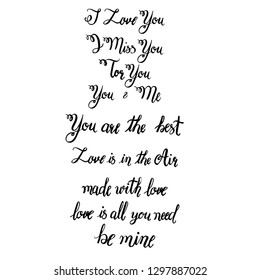 I Love You
I Miss You
For You
You & Me
You are the best
Love is in the Air
made with love
love is all you need
be mine
shutterstock.com · 1297887022